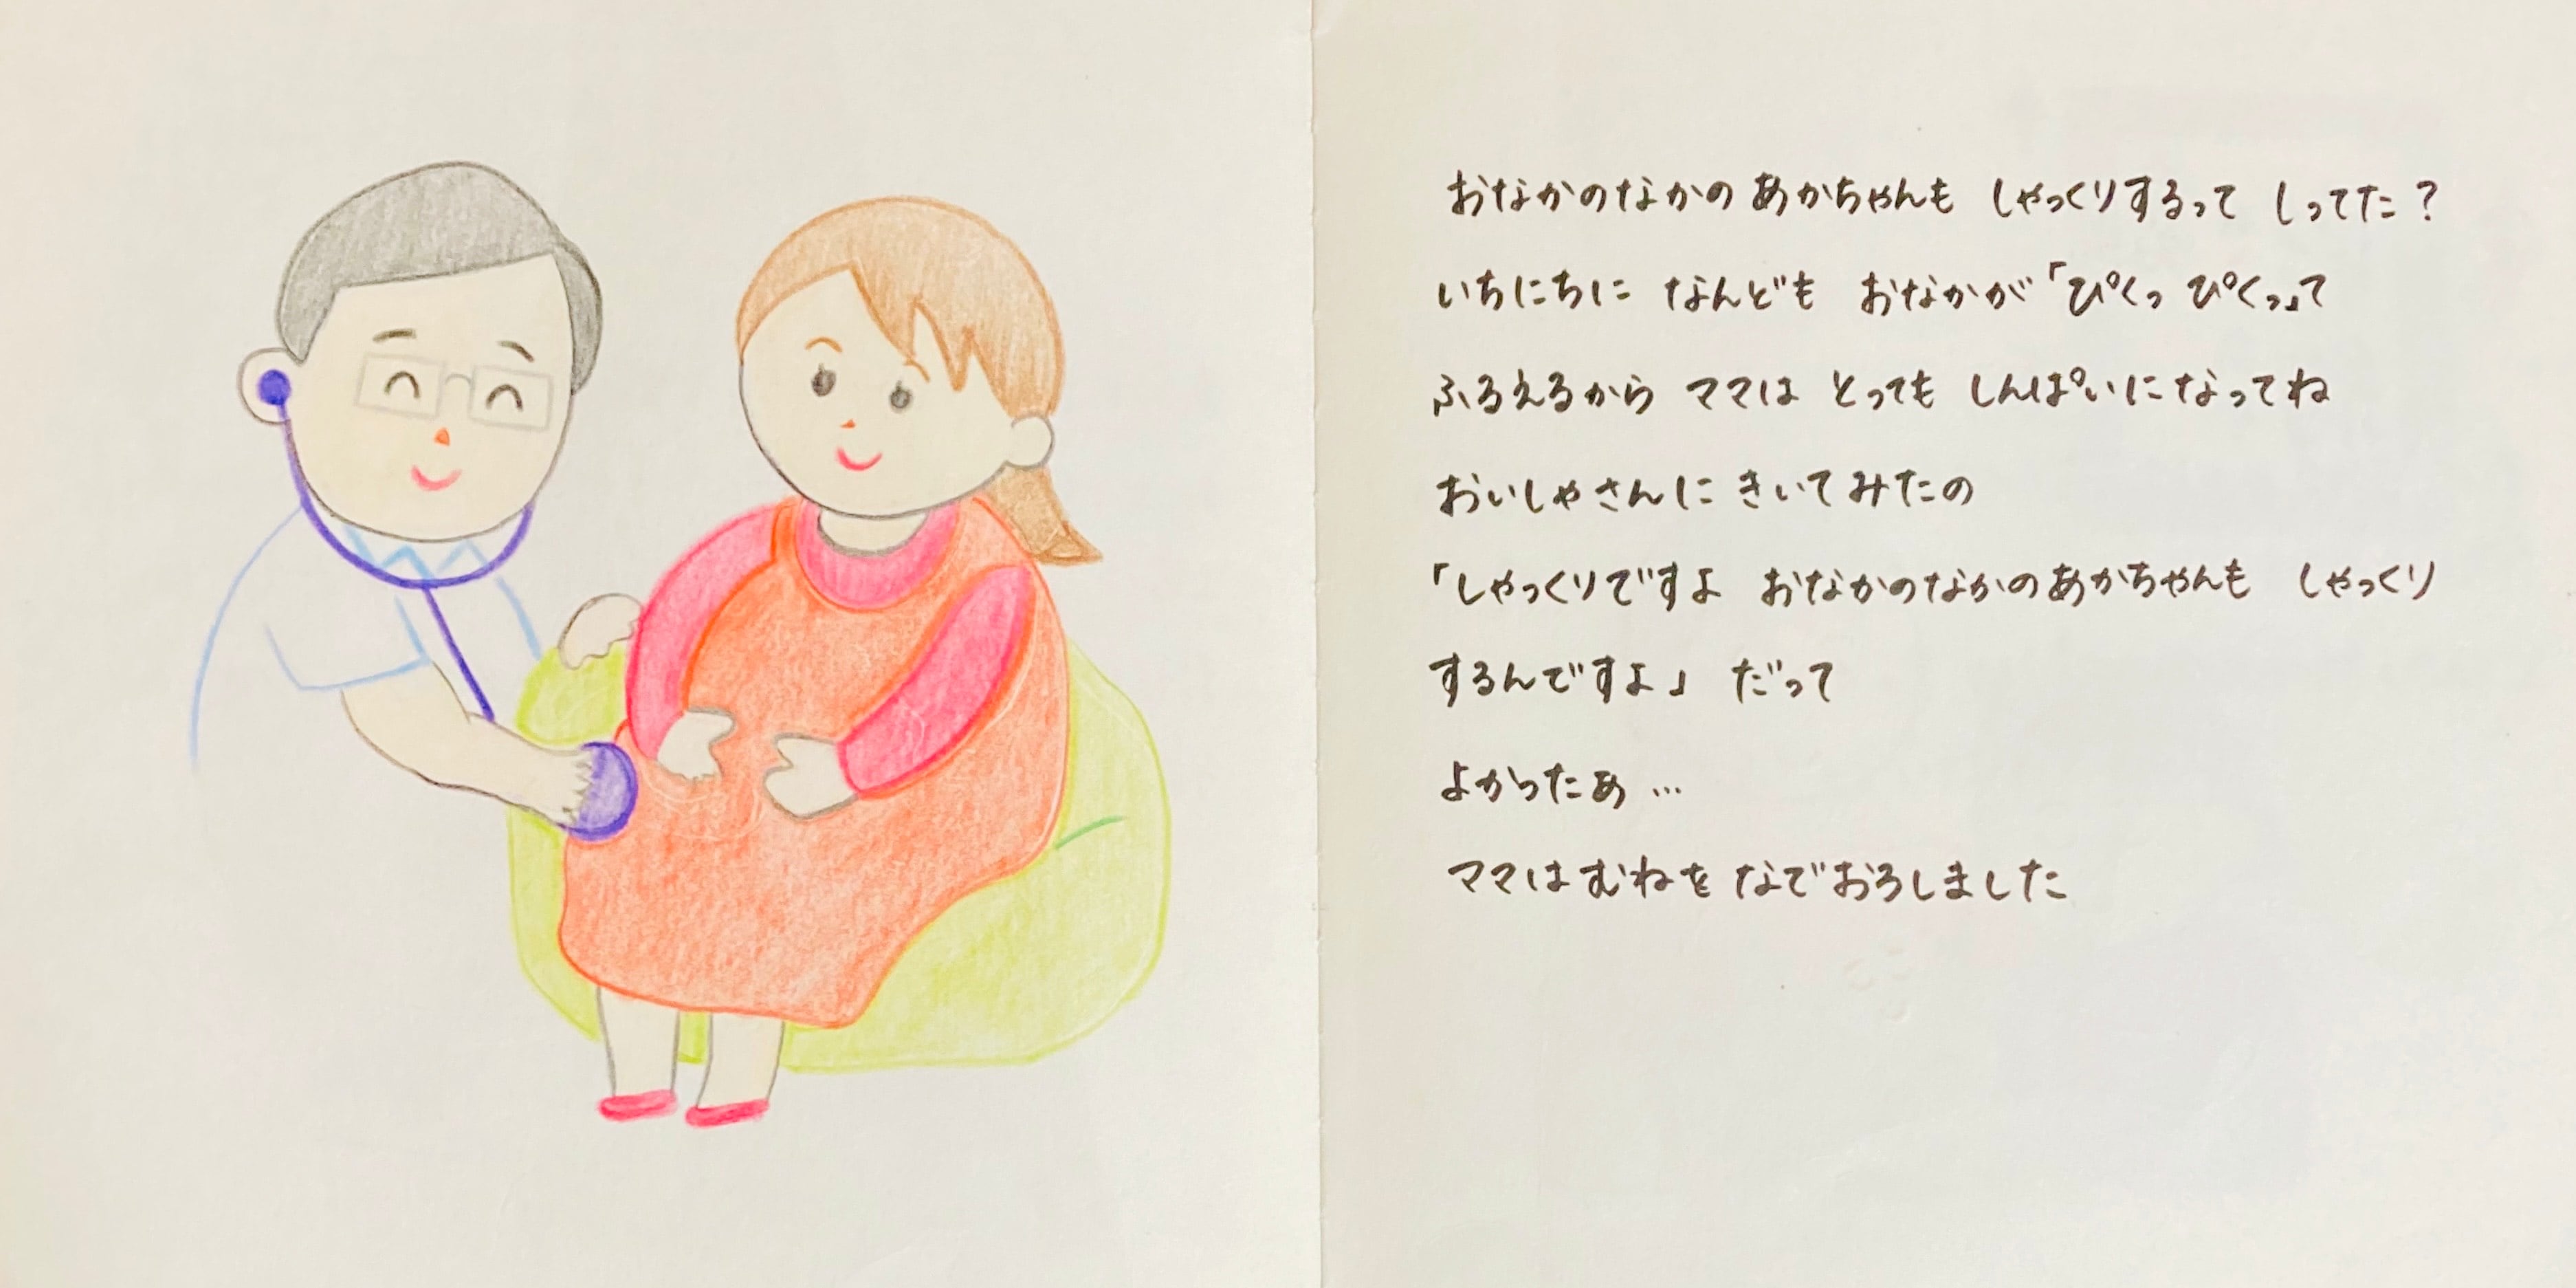 おなかのなかの あかちゃんも しゃっくりするって しってた？
いちにちに なんども おなかが「ぴくっ ぴくっ」て
ふるえるから ママは とっても しんぱいになってね
おいしゃさんに きいてみたの
「しゃっくりですよ おなかのなかのあかちゃんも しゃっくり
するんですよ」 だって
よかったあ …
ママはむねを なでおろしました